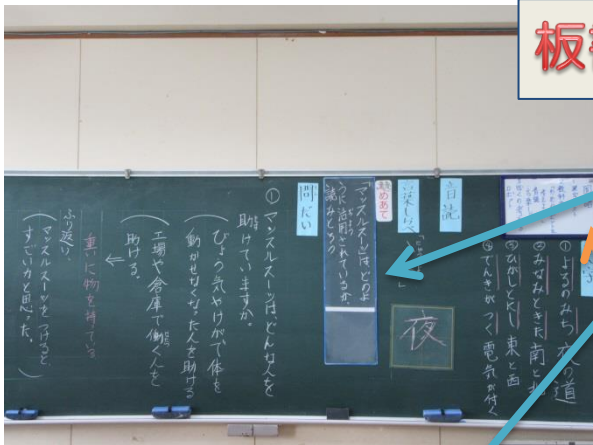 板書
①よるのみち 夜の道
②みなみときた 南と北
③ひがしとにし 東と西
④でんきがつく 電気が付く
夜
音読
言葉しらべ
めあて
「マッスルスーツ」は、どのよ
うに活用されているか、
読みとろう
問だい
①マッスルスーツはどんな人を
助けていますか。
びょう気やけがで体を
動かせなくなった人を助ける
工場や倉庫で働く人を
助ける。
重い物を持てる
ふり返り
マッスルスーツをつけると
すごい力と思った。